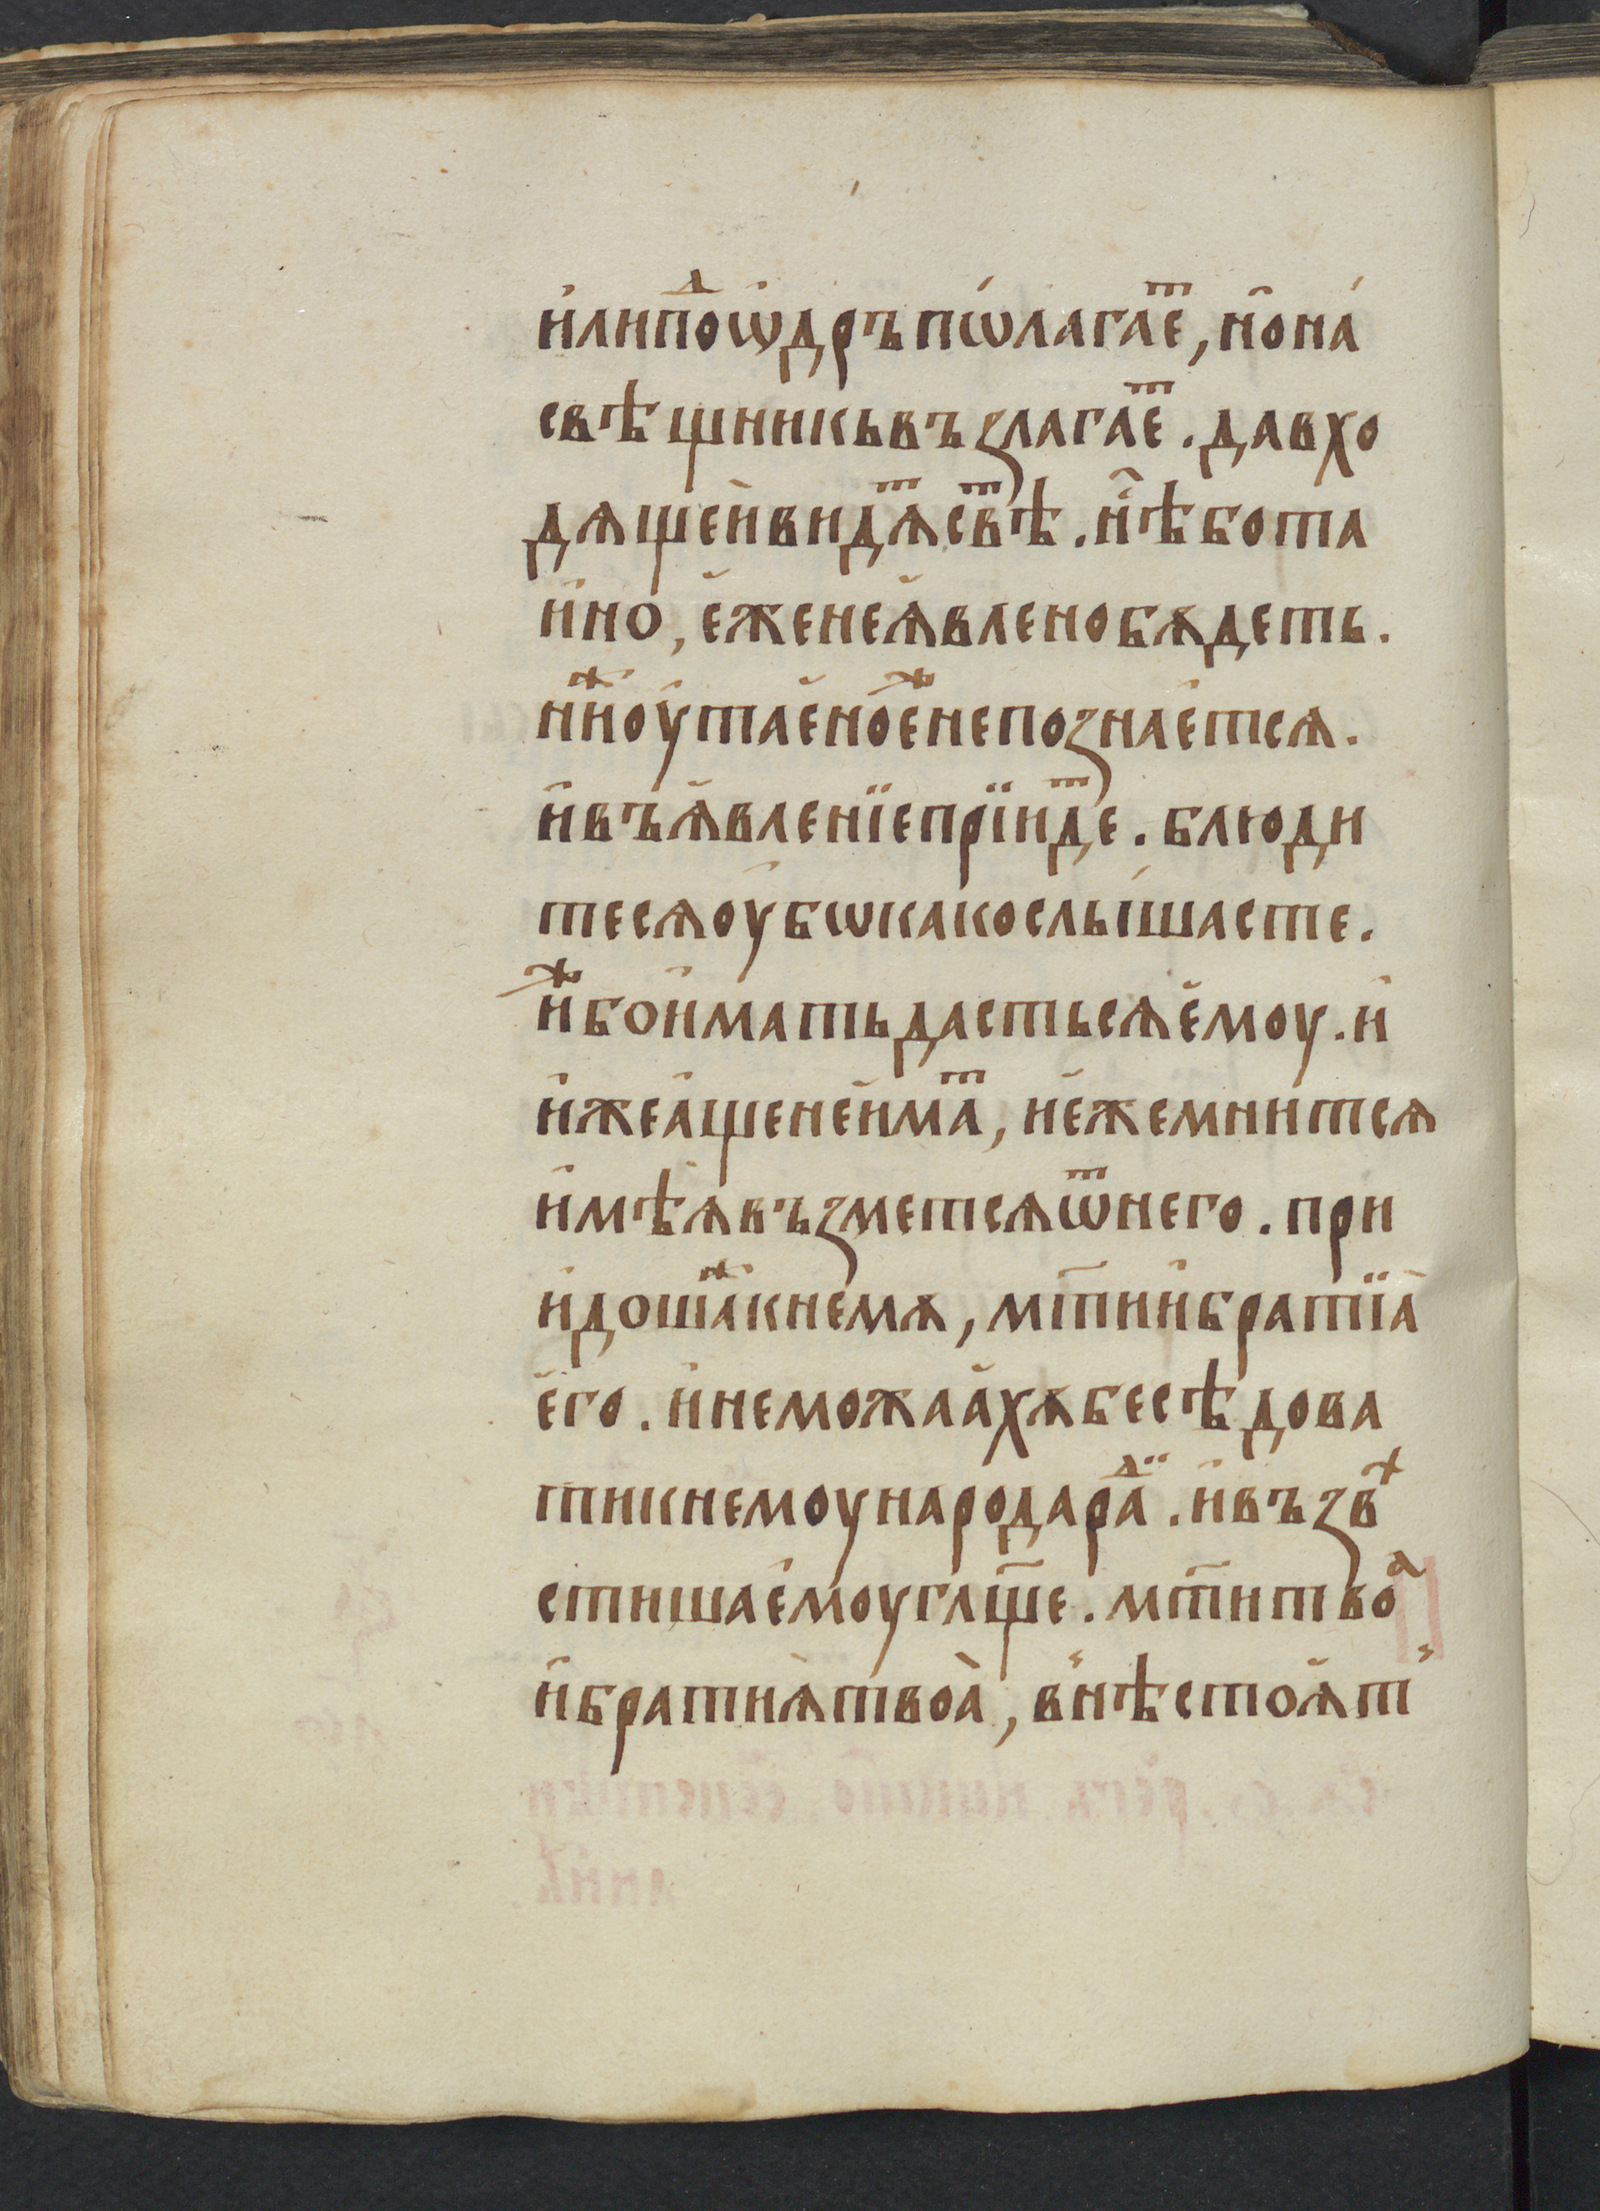 и҆липоⷣѡ҆дръ пѡ́лагае҆ⷮ, но҆на́
свѣщникь възлагае҆ⷮ. да вхо
дѧщеи҆ видѧⷮ свѣⷮ. нѣ҆ бо та
и҆но, е҆же не ꙗ҆влено бѫдеть.
ниⷤ ᲂу҆тае҆ноеⷤ не познае҆тсѧ.
и҆ въ ꙗ҆вленїе прїидеⷮ. блюди
тесѧ ᲂу҆бѡ како слы́шасте.
и҆ⷤ бо и҆мать дастьсѧ е҆моу. и҆
и҆же а҆ще не и҆маⷮ, и҆ е҆же мнитсѧ
и҆мѣѧ възметсѧ ѿ него. при
и҆дошаⷤ к немѫ, мт҃и и҆ братїа҆
е҆го. и҆ не можаа҆хѫ бесѣдова
ти к немоу народа раⷣ. и҆ възвⷮѣ
стиша е҆моу гл҃ще. мт҃и твоⷶ
и҆ братиꙗ҆ твоа҆, внѣ стоꙗ҆т